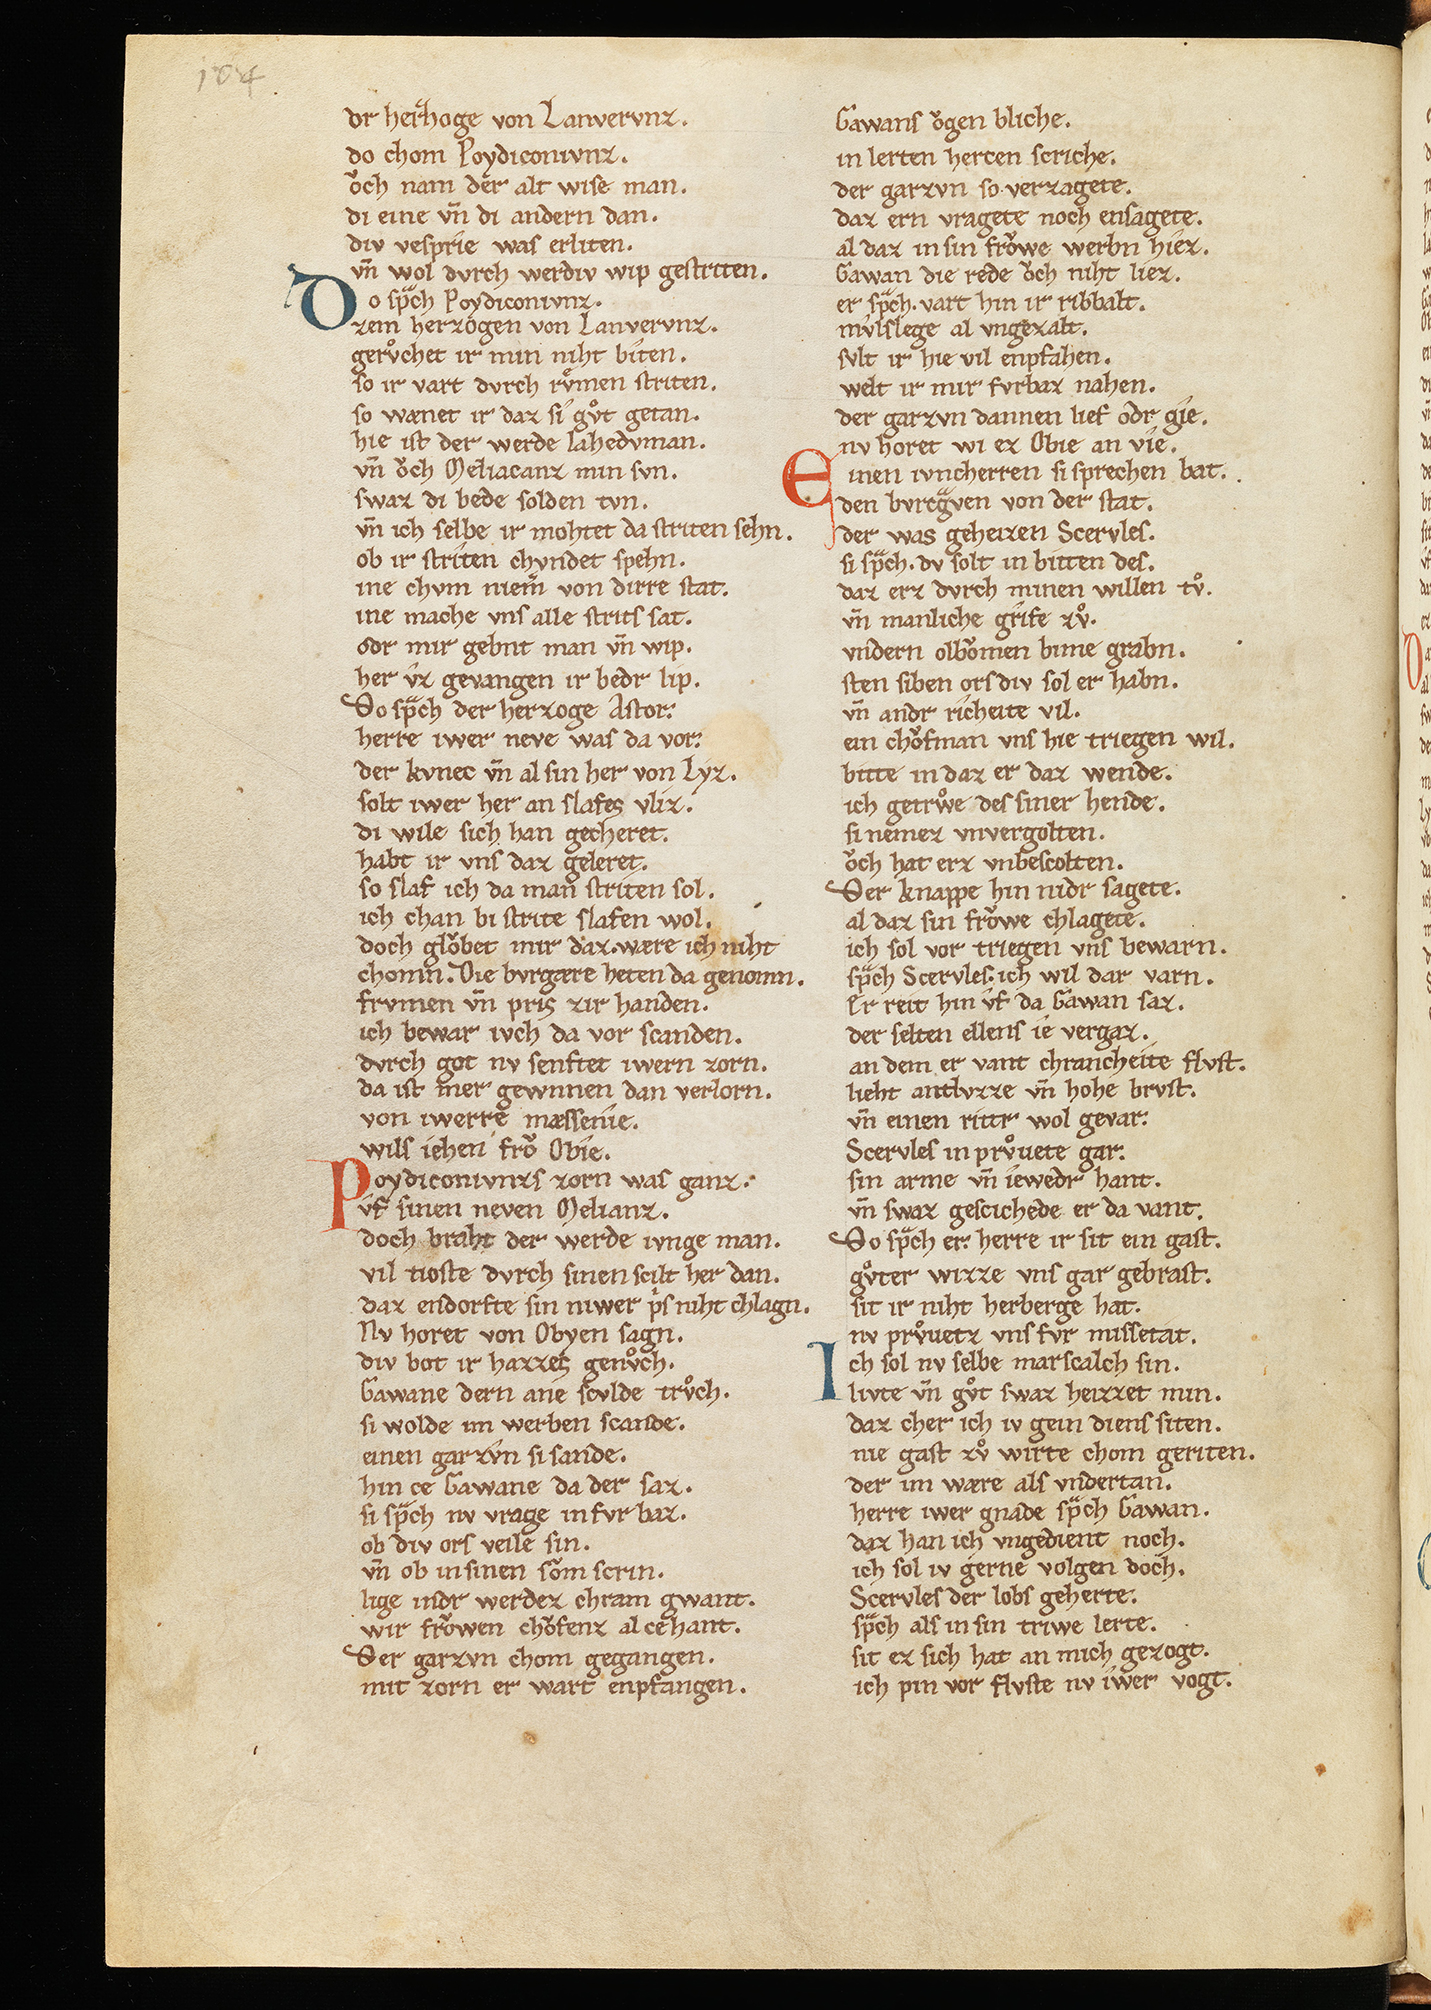 104
dr herzhoge von Lanverunz.
do chom Poydiconiunz.
ŏch nam der alt wise man.
di eine vn̄ di andern dan.
div vesprie was erliten.
vn̄ wol dvrch werdiv wip gestriten.
Do spͣch Poydiconiunz.
zem herzogen von Lanvervnz.
gerv̊chet ir min niht biten.
so ir vart dvrch rv̊men striten.
so wænet ir daz si gv̊t getan.
hie ist der werde Lahedvman.
vn̄ ŏch Meliacanz min svn.
swaz di bede solden tvn.
vn̄ ich selbe ir mohtet da striten sehn.
ob ir striten chvndet spehn.
ine chvm niem̄ von dirre stat.
ine mache vns alle strits sat.
odr mir gebnt man vn̄ wip.
her vz gevangen ir bedr lip.
Do spͣch der herzoge Astor:
herre iwer neve was da vor:
der kvnec vn̄ al sin her von Lyz.
solt iwer her an slafes vliz.
di wile sich han gecheret.
habt ir vns daz geleret.
so slaf ich da man striten sol.
ich chan bi strite slafen wol.
doch glŏbet mir daz. wære ich niht
chomn. Die bvrgære heten da genomn.
frvmen vn̄ pris zir handen.
ich bewar ivch da vor scanden.
dvrch got nv senftet iwern zorn.
da ist mer gewnnen dan verlorn.
von iwerre mæssenie.
wils iehen frŏ Obie.
Poydiconivnzs zorn was ganz:
vf sinen neven Melianz.
doch braht der werde ivnge man.
vil tioste dvrch sinen scilt her dan.
daz endorfte sin niwer pͥs niht chlagn.
Nv horet von Obyen sagn.
div bot ir hazzes genv̊ch.
Gawane dern ane scvlde trv̊ch.
si wolde im werben scande.
einen garzvn si sande.
hin ce Gawane da der saz.
si spͣch nv vrage in fvr baz.
ob div ors veile sin.
vn̄ ob in sinen sŏm scrin.
lige indr werdez chram gwant.
wir frŏwen chŏfenz al cehant.
Der garzvn chom gegangen.
mit zorn er wart enpfangen.
Gawans ŏgen bliche.
in lerten hercen scriche.
der garzvn so verzagete.
daz ern vragete noch ensagete.
al daz in sin frŏwe werbn hiez.
Gawan die rede ŏch niht liez.
er spͣch. vart hin ir ribbalt.
mvlslege al vngezalt.
svlt ir hie vil enpfahen.
welt ir mir fvrbaz nahen.
der garzvn dannen lief odr gie.
nv horet wi ez Obie an vie.
Einen ivncherren si sprechen bat.
den bvrcgͣven von der stat.
der was geheizen Scervles.
si spͣch. dv solt in bitten des.
daz erz dvrch minen willen tv̊.
vn̄ manliche grife zv̊.
vndern olbŏmen bime grabn.
sten siben ors div sol er habn.
vn̄ andr richeite vil.
ein chŏfman vns hie triegen wil.
bitte in daz er daz wende.
ich getrv̊we des siner hende.
si nemez vnvergolten.
ŏch hat erz vnbescolten.
Der knappe hin nidr sagete.
al daz sin frŏwe chlagete.
ich sol vor triegen vns bewarn.
spͣch Scervles. ich wil dar varn.
Er reit hin vf da Gawan saz.
der selten ellens ie vergaz.
an dem er vant chrancheite flvst.
lieht antlvzze vn̄ hohe brvst.
vn̄ einen rittr wol gevar:
Scervles in prv̊vete gar:
sin arme vn̄ iewedr hant.
vn̄ swaz gescichede er da vant.
Do spͣch er: herre ir sit ein gast.
gv̊ter wizze vns gar gebrast.
sit ir niht herberge hat.
nv prv̊uetz vns fvr missetat.
Ich sol nv selbe marscalch sin.
livte vn̄ gv̊t swaz heizzet min.
daz cher ich iv gein diens siten.
nie gast zv̊ wirte chom geriten.
der im wære als vndertan.
herre iwer gnade spͣch Gawan.
daz han ich vngedient noch.
ich sol iv gerne volgen doch.
Scervles der lobs geherte.
spͣch als in sin triwe lerte.
sit ez sich hat an mich gezogt.
ich pin vor flvste nv iwer vogt.